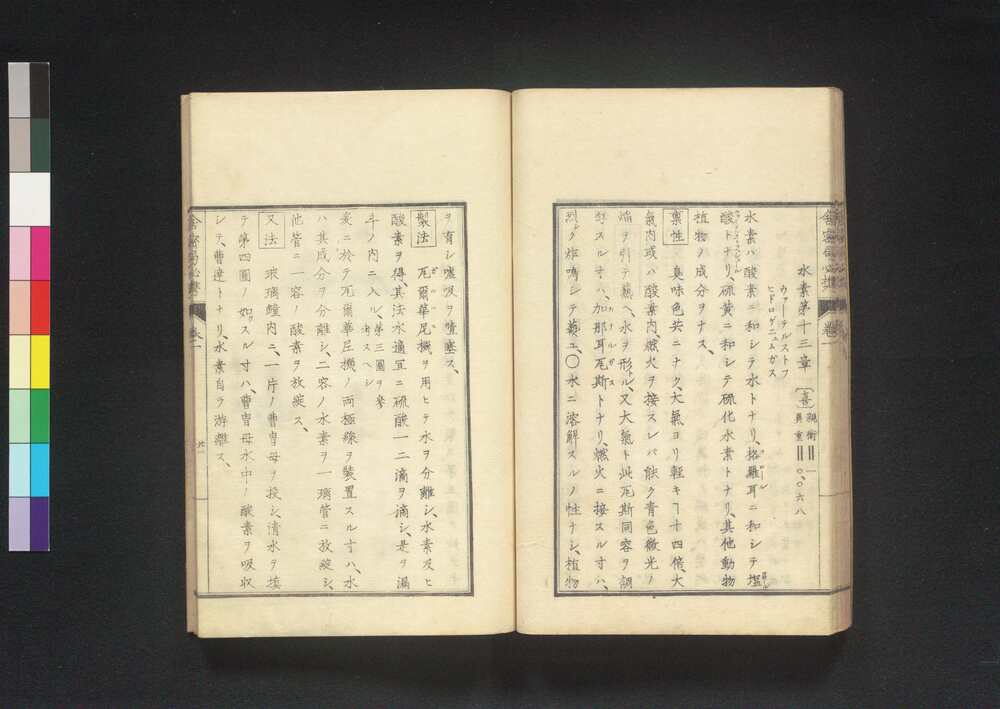 水素第十三章 〔喜〕親衛‖一 異重‖〇、〇六八
ウァーテルストフ
ヒドロゲニュムガス
水素ハ酸素ニ和シテ水トナリ、格羅耳ニ和シテ塩
酸トナリ、硫黄ニ和シテ硫化水素トナリ、其他動物
植物ノ成分ヲナス、
稟性 臭味色共ニナク、大氣ヨリ軽キヿ十四倍、大
氣内或ハ酸素内、燃火ヲ接スレバ輙ク青色微光ノ
焔ヲ引テ蒸ヘ、水ヲ形トル、又大氣ト此瓦斯同容ヲ調
スル寸ハ、加那耳瓦斯トナリ、燃火ニ接スル寸ハ、
烈シク炸鳴シテ蒸エ、〇水ニ溶解スルノ性ナシ、植物
ヲ有シ嘘吸ヲ壅塞ス、
製法 瓦爾華尼機ヲ用ヒテ水ヲ分離シ、水素及ヒ
酸素ヲ得、其法水適宜ニ硫酸一二滴ヲ滴シ、是ヲ漏
斗ノ内ニ入ル、第三圖ヲ參考スヘシ
爰ニ於テ瓦爾華尼機ノ両極線ヲ装置スル寸ハ、水
ハ其成分ヲ分離シ、二容ノ水素ヲ一璃管ニ放縦シ、
他管ニ一容ノ酸素ヲ放縦ス、
又法 玻璃鐘内ニ、一片ノ曹冑母ヲ投シ、清水ヲ填
テ第四圖ノ如スル寸ハ、曹冑母水中ノ酸素ヲ吸収
シテ、曹達トナリ、水素自ラ游離ス、